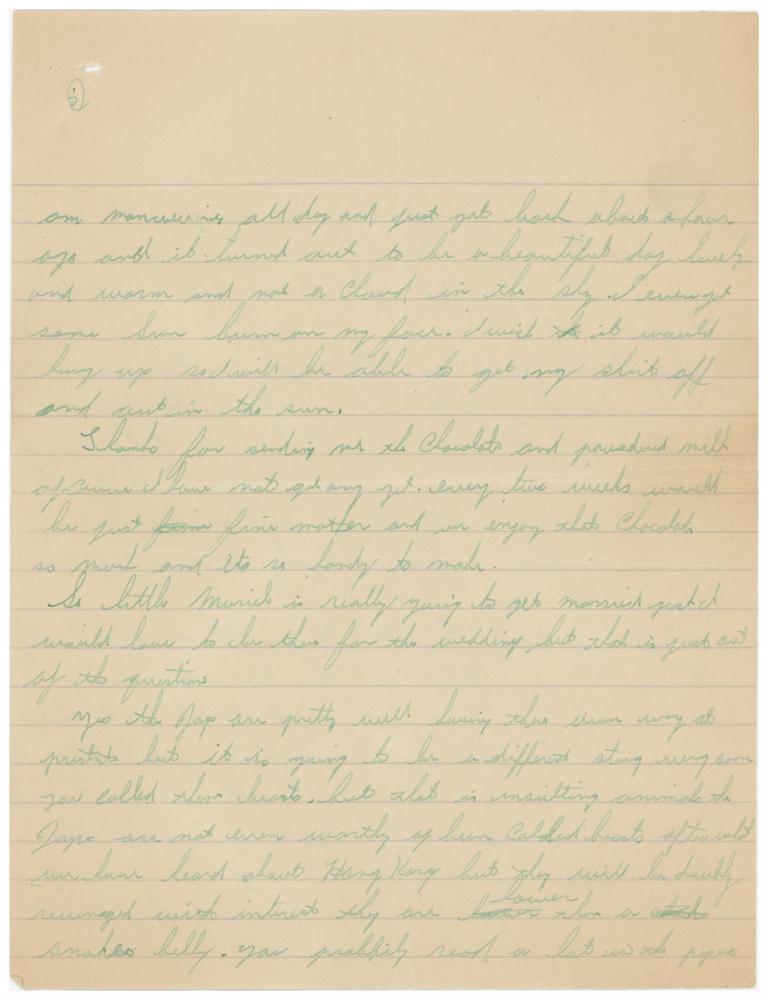 5
on manouvers all day and just got back about a hour
ago and it turned out to be a beautiful day lovely
and warm and not a cloud in the sky. I even got
some sun burn on my face. I wish it would
hury up so I will be able to get my shirt off
and out in the sun.
Thanks for sending me the Chocolate and powdered milk
of course I have not got any yet. every two weeks would
be just fine mother and we enjoy that Chocolate
so much and its so handy to make.
So little Muriel is really going to get married gosh I
would love to be there for the wedding, but that is just out
of the question
Yes the Jap are pretty well having there own way at
but it is going to be a different story very soon
you called them beasts, but that is insulting animals the
Japs are not even worthy of been called beasts after what
we have heard about Hong Kong but they will be doubly
revenged with interest they are lower then a
snakes belly. You probbily read a lot in the papers